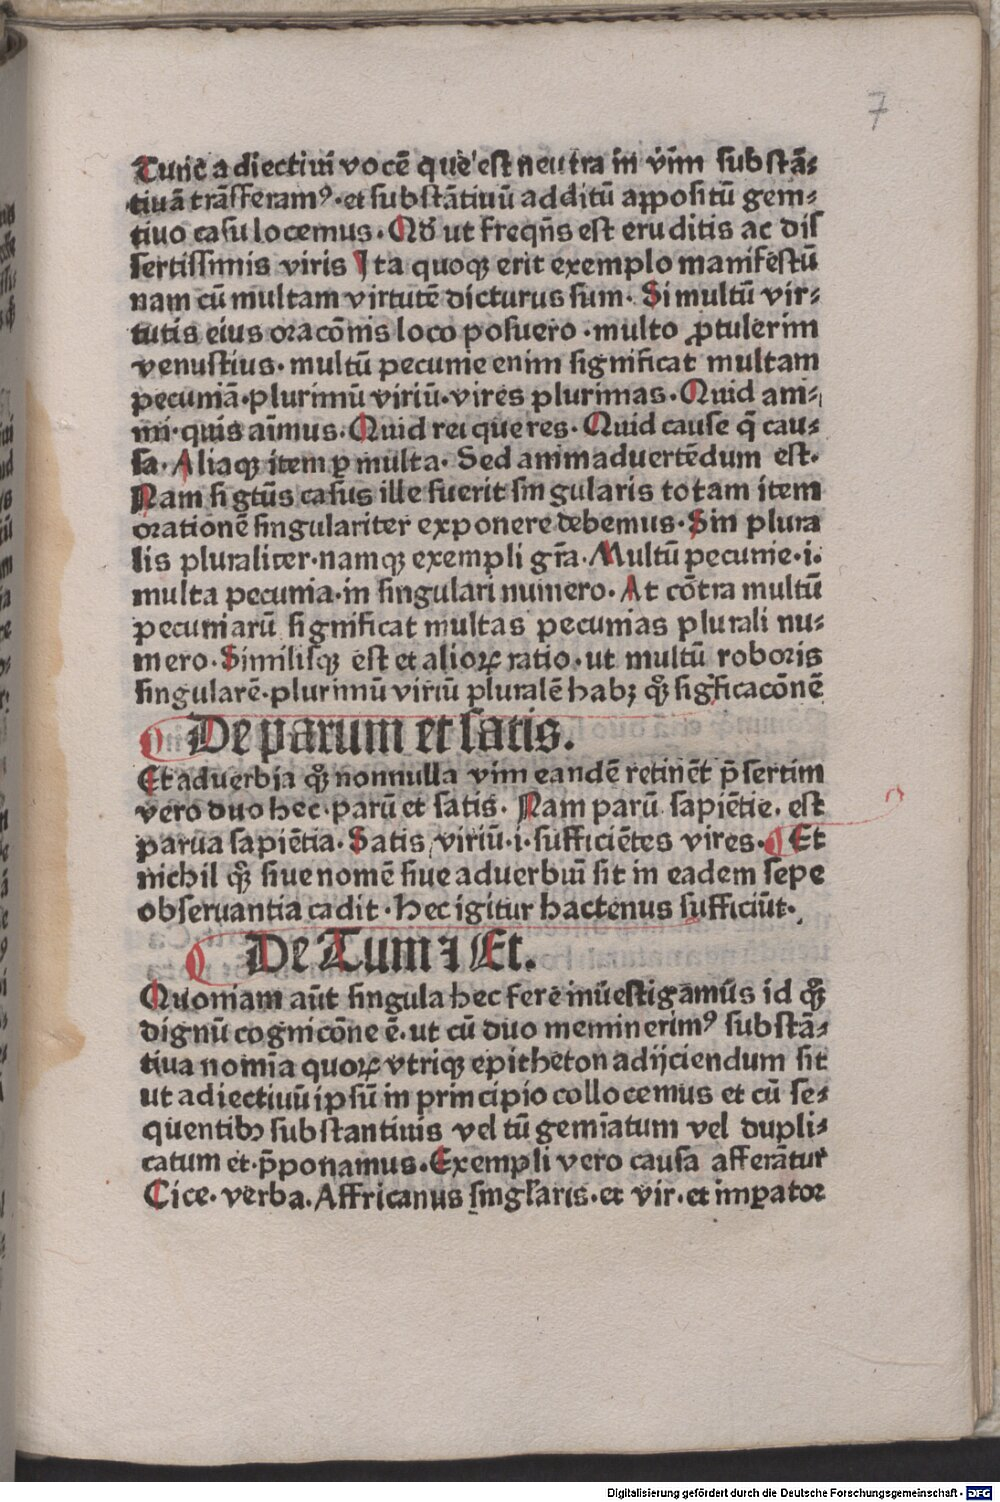 7
Tunc adiectiui vocē que est neutra in vim substā⸗
tiuā trāsferamꝰ·et substātiuū additū appositū geni⸗
tiuo casu locemus. Qd ut freqn̄s est eruditis ac dis
sertissimis viris Ita quoqꝫ erit exemplo manifestū
nam cū multam virtutē dicturus sum. Si multū vir⸗
tutis eius oracōnis loco posuero·multo ꝓtulerim
venustius. multū pecunie enim significat multam
pecuniā.plurimū viriū.vires plurimas. Quid ani⸗
mi·quis aīmus. Quid rei que res. Quid cause q̄ cau⸗
sa. Aliaqꝫ item ꝑ multa. Sed animaduertēdum est.
Nam si gtūs casus ille fuerit singularis totam item
orationē singulariter exponere debemus. Sin plura
lis pluraliter.namqꝫ exempli gr̄a. Multū pecunie.i.
multa pecunia.in singulari numero. At cōtra multū
pecuniarū significat multas pecunias plurali nu⸗
mero. Similisqꝫ est et alioꝝ ratio.ut multū roboris
singularē.plurimū viriū pluralē habꝫ qꝫ̄ sigficacōnē
De parum et satis.
Et aduerbia qꝫ̄ nonnulla vim eandē retinēt p̄sertim
vero duo hec.parū et satis. Nam parū sapiētie. est
parua sapiētia. Satis viriū.i.sufficiētes vires. ¶ Et
nichil qꝫ̄ siue nomē siue aduerbiū sit in eadem sepe
obseruantia cadit. Hec igitur hactenus sufficiūt.
De Tum ⁊ Et.
Quoniam aūt singula hec fere inuestigamus id qꝫ̄
dignū cognicōne ē. ut cū duo meminerimꝰ substā⸗
tiua nomīa quoꝝ vtriqꝫ epitheton adijciendum sit
ut adiectiuū ipsū in principio collocemus et cū se⸗
quentibꝫ substantiuis vel tū geminatum vel dupli⸗
catum et.p̄ponamus. Exempli vero causa afferātur
Cice. verba. Affricanus singl'aris.et vir.et imꝑator
Digitalisierung gefördert durch die Deutsche Forschungsgemeinschaft - DFG